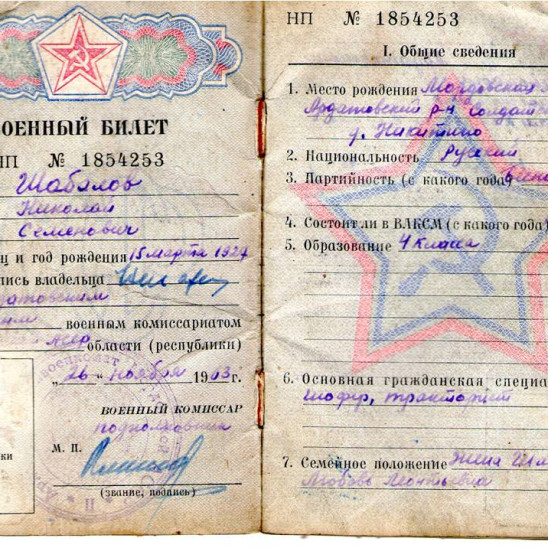 ВОЕННЫЙ БИЛЕТ
НП № 1854253
Шабалов
Николай
Семенович
и год рождения 15 марта 1927
владельца
военным комиссариатом
области (республики)
"26" ноября 1963 г.
ВОЕННЫЙ КОМИССАР
подполковник
М. П.
(звание, подпись)
НП № 1854253
I. Общие сведения
1. Место рождения Мордовская
Ардатовский р-н
д. Никитино
2. Национальность Русский
3. Партийность (с какого года)
4. Состоит ли в ВЛКСМ (с какого года)
5. Образование 4 класса
6. Основная гражданская
шофер, тракторист
7. Семейное положение Жена
Любовь Леонтьевна